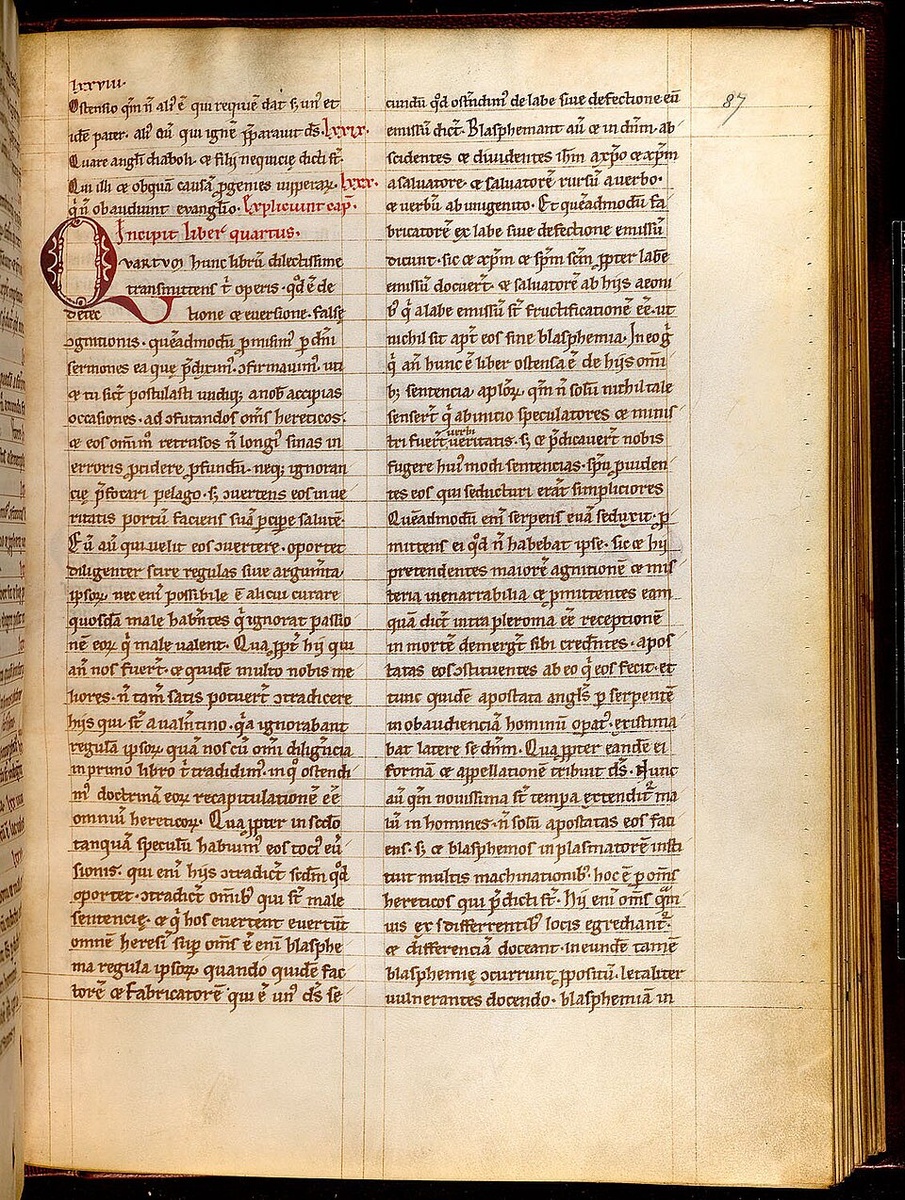 lxxviii.
Ostensio qm̄ n̄ ali᷒ ē qui requiē dat s; un᷒ et
idē pater. ali᷒ aū qui ignē p̄parauit d̄s. lxxix.
Quare angli diaboli. ⁊ filij nequicię dicti st̄.
Qui illi ⁊ ob quā causā ꝓgenies uipperaꝝ. lxxx.
q̄ n̄ obaudiunt evanglio. Expliciunt cap̄.
Incipit liber quartus.
QVARTVM hunc librū dilectissime
transmittens t̄ operis. qd̄ ē de
detectione ⁊ euersione. false
ꝯgnitionis. quēadmodū ꝓmisim᷒ p̄ dn̄i
sermones ea que p̄dixim᷒. ꝯfirmauim᷒. uti
⁊ tu sict̄ postulasti undiq; a nob᷒ accipias
occasiones. ad ꝯfutandos om̄s hereticos.
⁊ eos om̄im᷒ retrusos n̄ longi᷒ sinas in
erroris ꝓcidere ꝓfundū. neq; ignoran
cię p̄focari pelago. s; ꝯuertens eos in ue
ritatis portū faciens suā ꝑcipe salutē.
Eū aū qui uelit eos ꝯuertere. oportet
diligenter scire regulas siue argum̄ta
ipsoꝝ nec enī possibile ē alicui curare
quosdā male habn̄tes q̄ ignorat passio
nē eoꝝ q̄ male ualent. Qua ꝓpt̄ hij qui
an̄ nos fuert̄. ⁊ quidē multo nobis me
liores. n̄ tam̄ satis potuert̄ ꝯtradicere
hijs qui st̄ a ualn̄tino. q̄a ignorabant
regulā ipsoꝝ quā nos cū om̄i dilign̄cia
in primo libro t̄ tradidim᷒. in q̊ ostendi
m᷒ doctrinā eoꝝ recapitulationē eē̄
omniū hereticoꝝ. Qua ꝓpter in sc̄do
tanquā speculū habuim᷒ eos toci᷒ eu᷒
sionis. qui enī hijs ꝯtradict̄ sedm̄ qd̄
oportet. ꝯtradict̄ omib᷒ qui st̄ male
sentencię. ⁊ q̄ hos euertent euertūt
omnē heresī sup̄ om̄s ē enī blasphe
ma regula ipsoꝝ quando quidē fac
torē ⁊ fabricatorē qui ē un᷒ d̄s se
cundū qd̄ ostn̄dim᷒ de labe siue defectione eū
emissū dict̄. Blasphemant aū ⁊ in dn̄m. ab
scidentes ⁊ diuidentes ihm̄ a xp̄o ⁊ xp̄m
a saluatore. ⁊ saluatorē rursū a uerbo.
⁊ uerbū ab unigenito. Et quēadmodū fa
bricatorē ex labe siue defectione emissū
dicunt. sic ⁊ xp̄m ⁊ sp̄m sc̄m ꝓpter labē
emissū docuert̄. ⁊ saluatorē ab hijs aeoni
b᷒ q̄ a labe emissū st̄ fructificationē eē. ut
nichil sit apt̄ eos sine blasphemia. In eog̊
q̄ an̄ hunc ē liber ostensa ē de hijs om̄i
b; sentencia aploꝝ. qm̄ n̄ solū nichil tale
sensert̄ q̄ ab inicio speculatores ⁊ minis
tri fuert̄ uerbi ueritatis. s; ⁊ p̄dicauert̄ nobis
fugere hui᷒ modi sentencias. sp̄u ꝓuiden
tes eos qui seducturi erāt simpliciores
Quēadmodū enī serpens euā seduxit. ꝓ
mittens ei qd̄ n̄ habebat ipse. sic ⁊ hij
pretendentes maiorē agnitionē ⁊ mis
teria inenarrabilia ⁊ ꝓmittentes eam
quā dict̄ intra pleroma eē receptionē
in mortē demergt̄ sibi credn̄tes. apos
tatas eos ꝯstituentes ab eo q̄ eos fecit. et
tunc quidē apostata angl̄s ꝑ serpentē
inobaudienciā hominū opat᷒. existima
bat latere se dn̄m. Qua ꝓpter eandē ei
formā ⁊ appellationē tribuit d̄s. Nunc
aū qm̄ nouissima st̄ tempa extendit᷒ ma
lū in homines. n̄ solū apostatas eos faci
ens. s; ⁊ blasphemos in plasmatorē insti
tuit multis machinationib᷒. hoc ē ꝑ om̄s
hereticos qui p̄dicti st̄. Hij enī om̄s qm̄
uis ex differrentib᷒ locis egrediant᷒.
⁊ differenciā doceant. in eundē tamē
blasphemię ꝯcurrunt ꝓpositū. letaliter
uulnerantes docendo. blasphemiā in
87